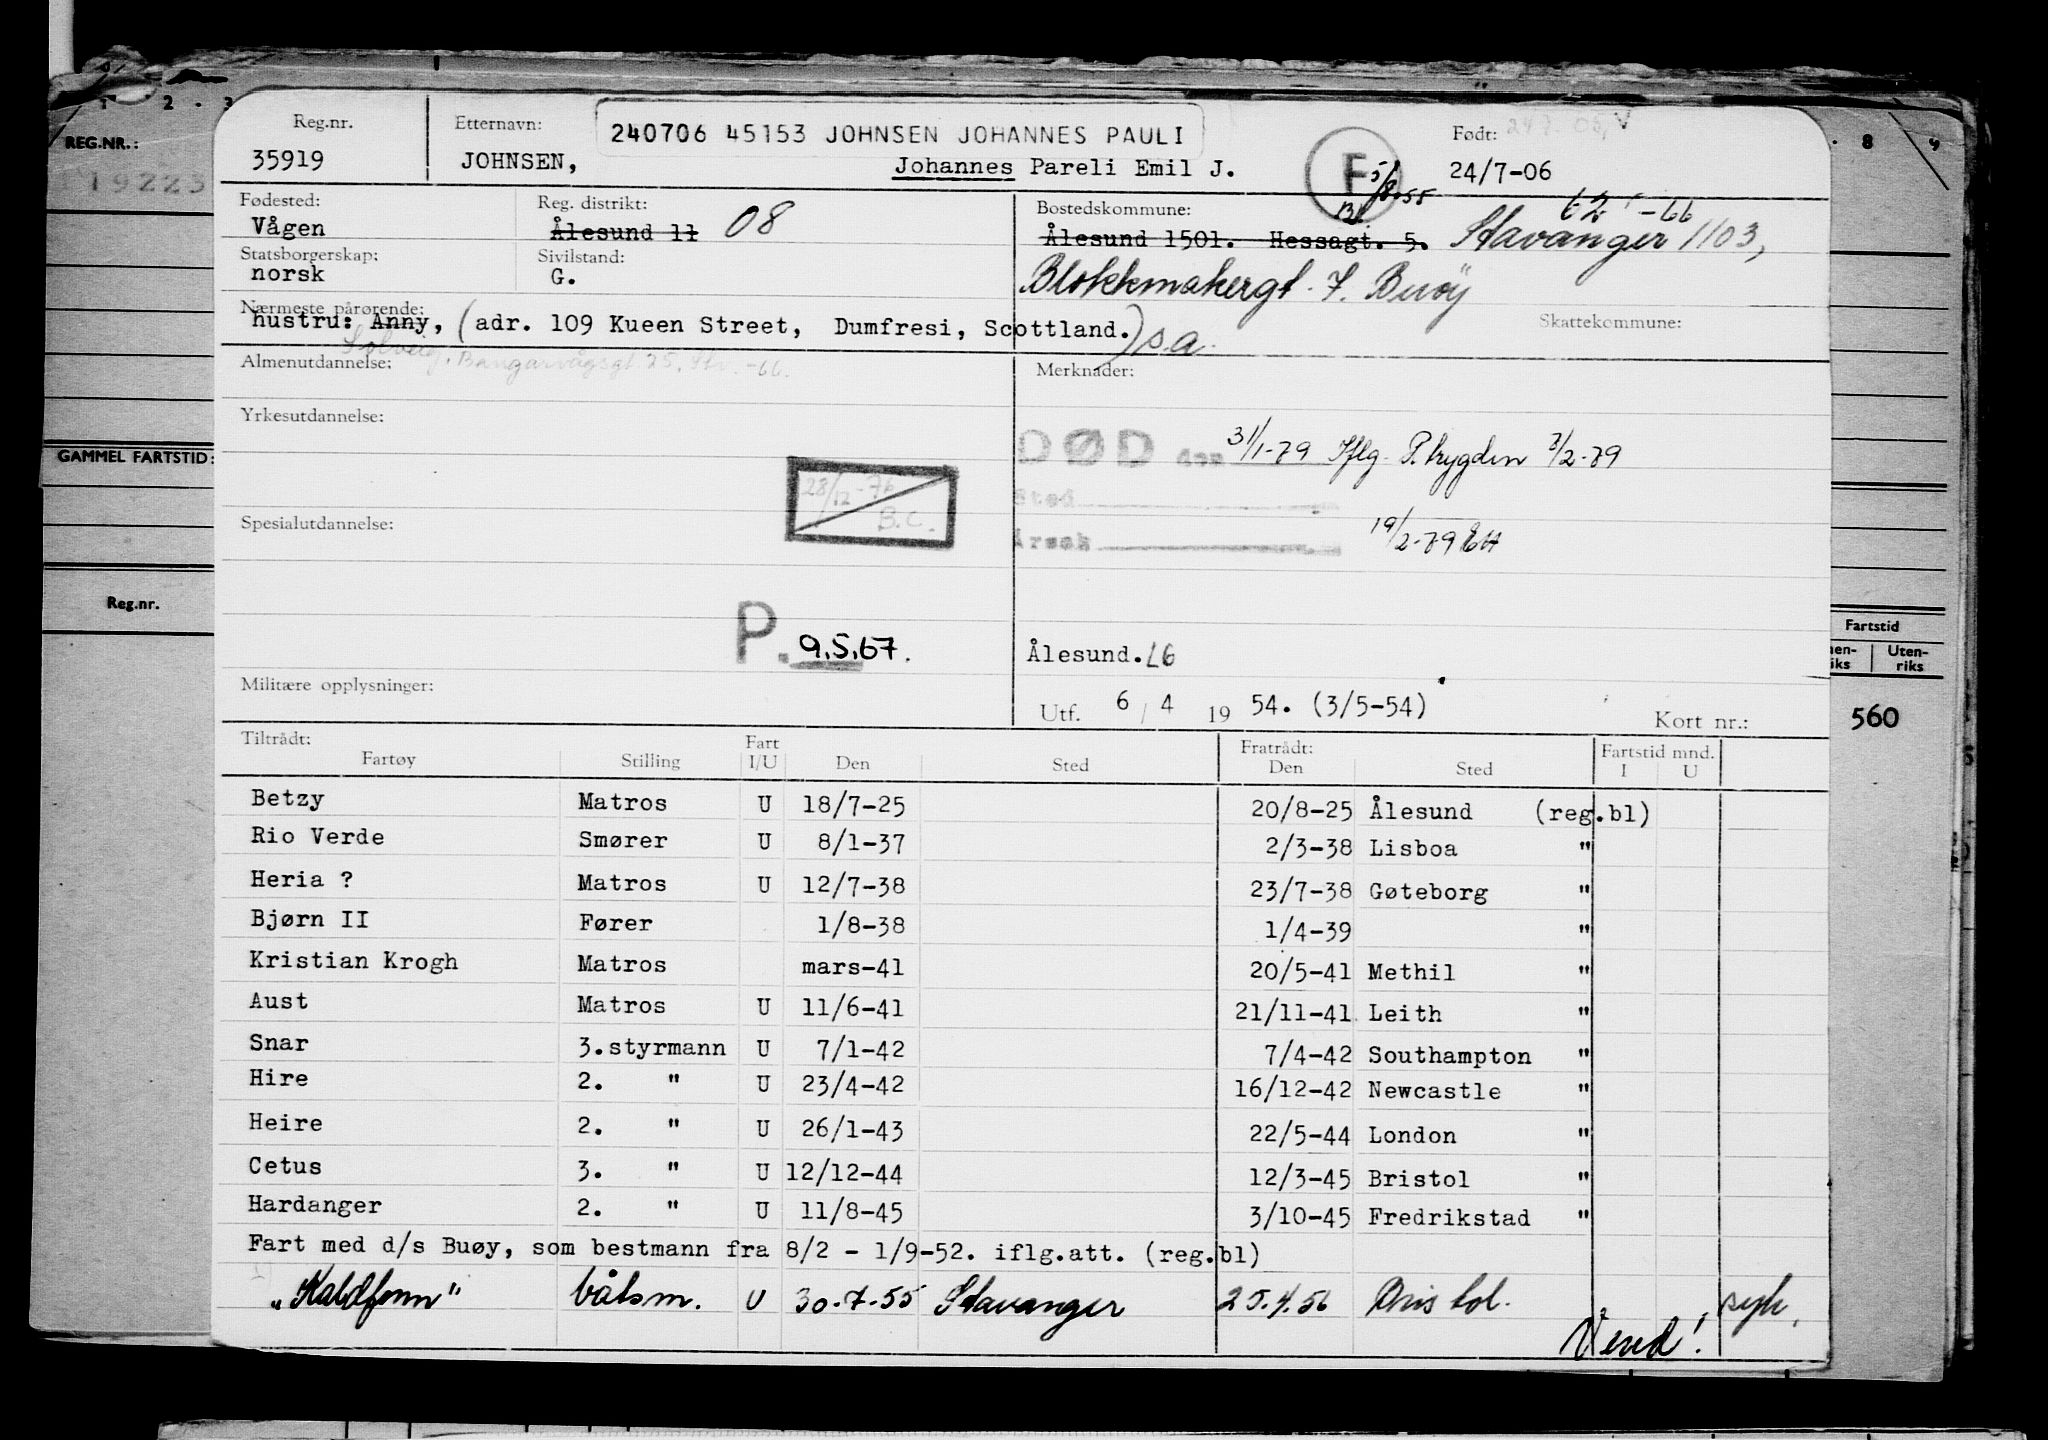 1 2 . 3
REG.NR.:
119223
GAMMEL FARTSTID:
Reg.nr.
. 8 9
Fartstid
Uten-
riks
560
Reg.nr.
35919
Etternavn:
240706 45153 JOHNSEN JOHANNES PAULI
JOHNSEN, Johannes Pareli Emil J.
F
5/8-55
Født:
24/7-06
Fødested:
Vågen
Reg. distrikt:
Ålesund 11 08
Bostedskommune:
Ålesund 1501. Hessagt. 5. Stavanger 1103,
-66
Statsborgerskap:
norsk
Sivilstand:
G.
Blokkmakergt. 7. Buøy
Nærmeste pårørende:
hustru: Anny, (adr. 109 Kueen Street, Dumfresi, Scottland.) s.a.
Skattekommune:
Solveig, Bangarvågsgt 25, Stv. -66.
Almenutdannelse:
Merknader:
Yrkesutdannelse:
DØD den 31/1-79 Iflg. P.trygden 7/2-79
28/12-76
B.C.
Sted
Spesialutdannelse:
Årsak
19/2-79 EH
P. 9.5.67.
Ålesund. LG
Militære opplysninger:
Utf. 6 / 4 19 54. (3/5-54)
Kort nr.:
Tiltrådt: Fratrådt: Fartstid mnd.
Fartøy Stilling Fart I/U Den Sted Den Sted I U
Betzy Matros U 18/7-25 20/8-25 Ålesund (reg.bl)
Rio Verde Smører U 8/1-37 2/3-38 Lisboa "
Heria ? Matros U 12/7-38 23/7-38 Gøteborg "
Bjørn II Fører 1/8-38 1/4-39 "
Kristian Krogh Matros mars-41 20/5-41 Methil "
Aust Matros U 11/6-41 21/11-41 Leith "
Snar 3.styrmann U 7/1-42 7/4-42 Southampton "
Hire 2. " U 23/4-42 16/12-42 Newcastle "
Heire 2. " U 26/1-43 22/5-44 London "
Cetus 3. " U 12/12-44 12/3-45 Bristol "
Hardanger 2. " U 11/8-45 3/10-45 Fredrikstad "
Fart med d/s Buøy, som bestmann fra 8/2 - 1/9-52. iflg.att. (reg.bl)
"Kaldfonn" båtsm. U 30-7-55 Stavanger 25.4.56 Bristol. syk.
Vend!